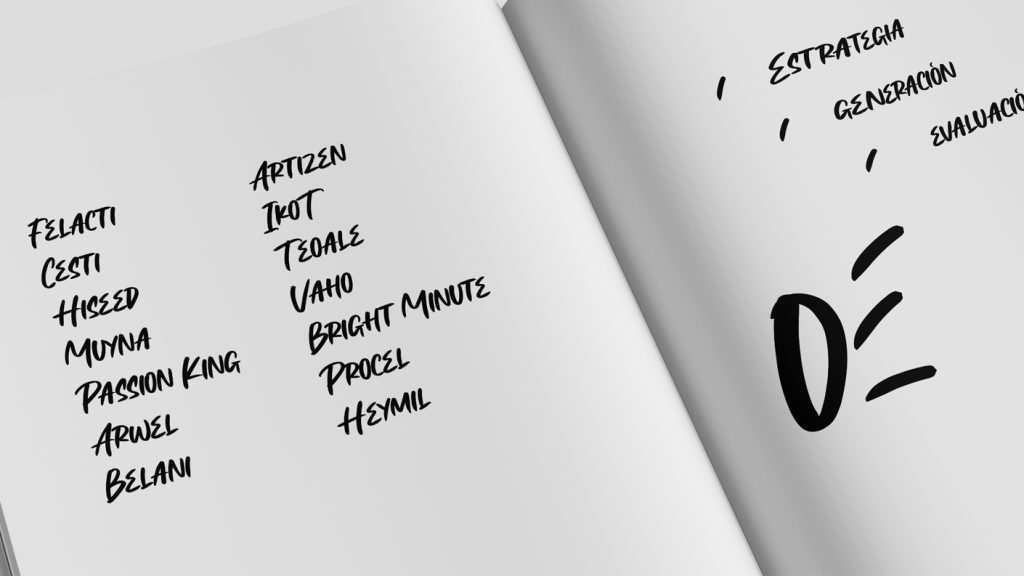 Felacti
Cesti
Hiseed
Muyna
Passion King
Arwel
Belani
Artizen
Ikot
Teoale
Vaho
Bright Minute
Procel
Heymil
Estrategia
Generación